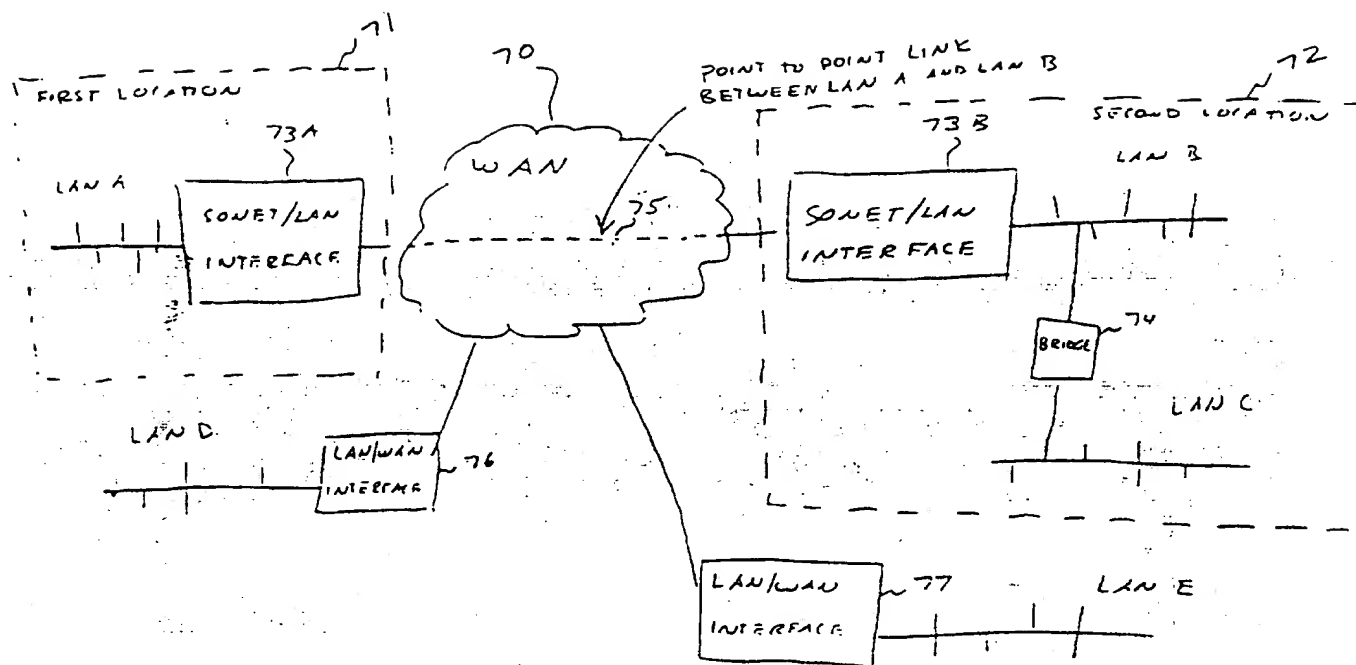 71
FIRST LOCATION
73A
LAN A
SONET/LAN
INTERFACE
70
WAN
POINT TO POINT LINK
BETWEEN LAN A AND LAN B
75
72
SECOND LOCATION
73B
LAN B
SONET/LAN
INTERFACE
74
BRIDGE
LAN C
LAN D
LAN/WAN
INTERFACE
76
LAN/WAN
INTERFACE
77
LAN E